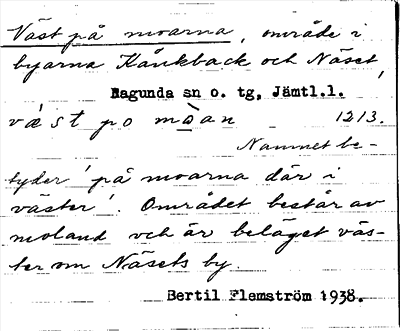 Väst på moarna, område i
byarna Kånkback och Näset,
Ragunda sn o. tg, Jämtl.l.
väst po mòan 1213.
Namnet be-
tyder 'på moarna där i
väster'. Området består av
moland och är beläget väs-
ter om Näsets by
Bertil Flemström 1938.